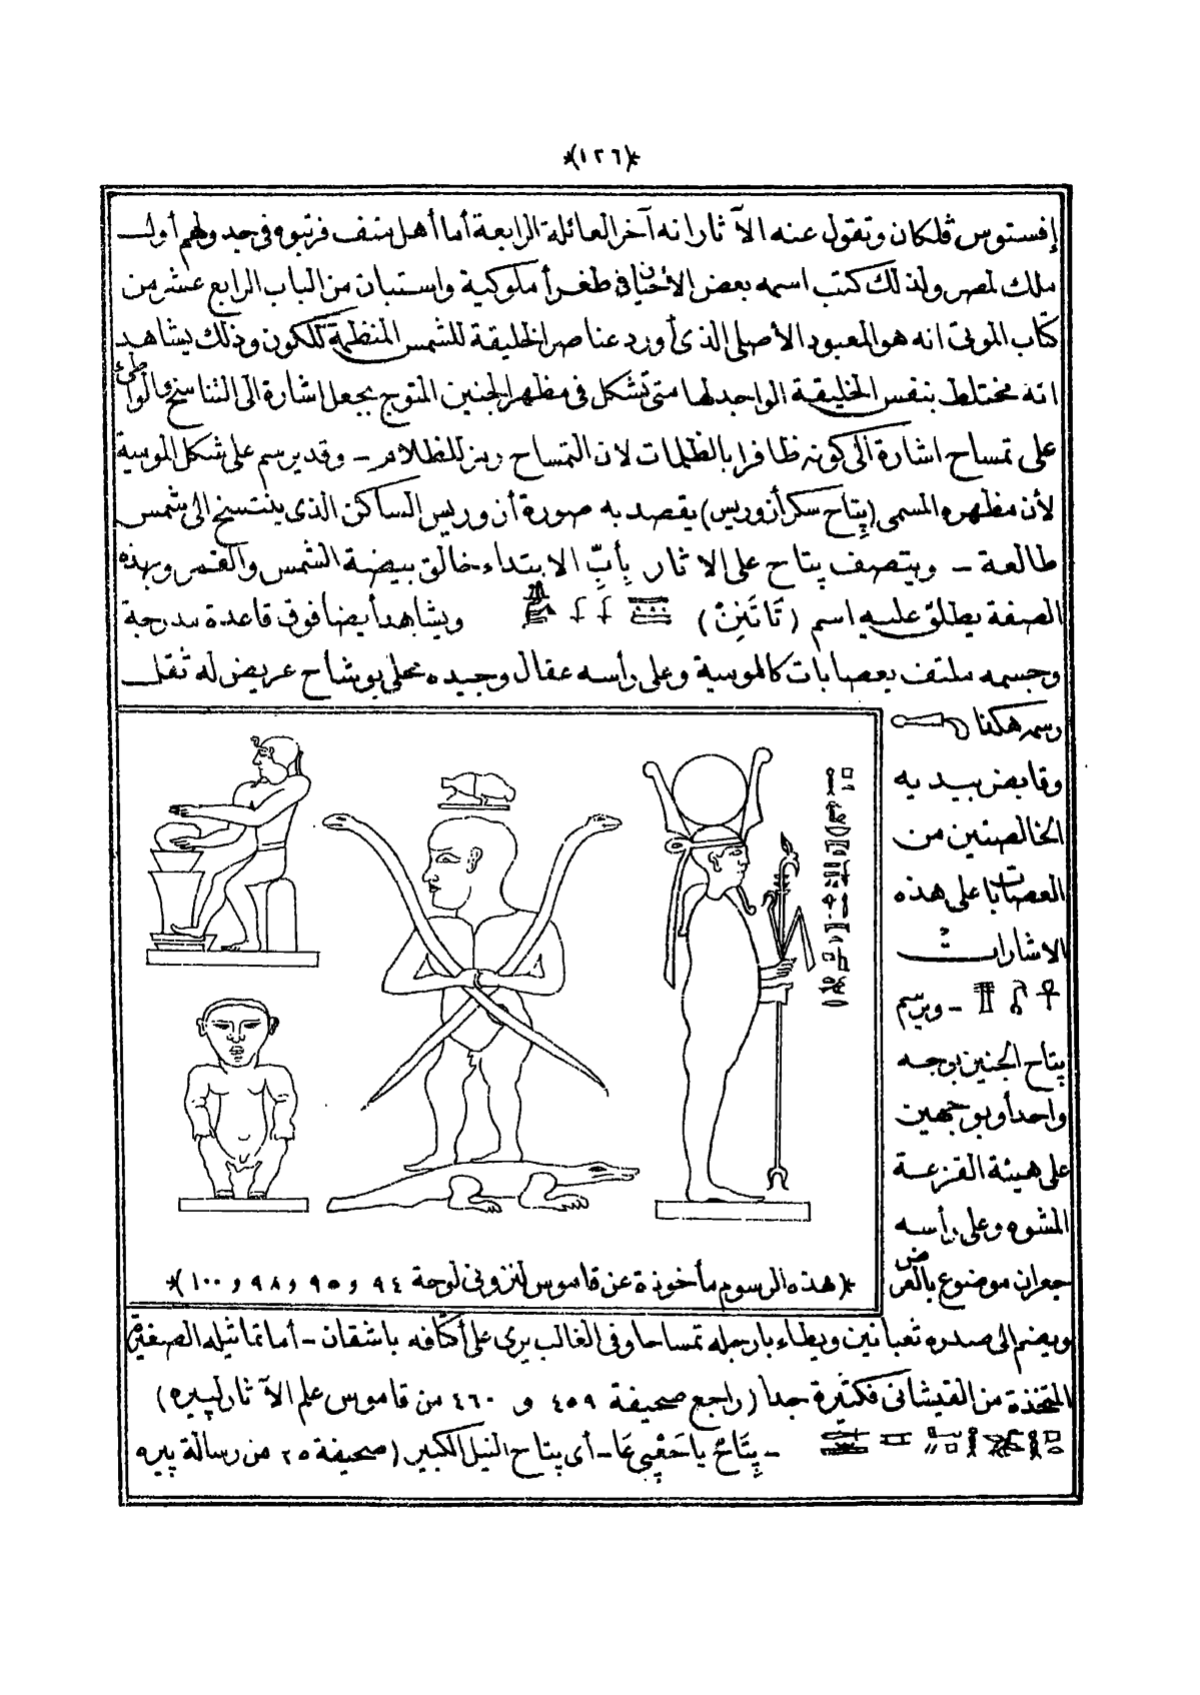 *(١٢٦)*
إفستوس ڤلكان وتقول عنه الآثار انه آخر العائلة الرابعة أما أهل منف فرتبوه في جدولهم أول
ملك لمصر ولذلك كتب اسمه بعض الأحيان في طغرأ ملوكية واستبان من الباب الرابع عشر من
كتاب الموتى انه هو المعبود الأصلي الذي أورد عناصر الخليقة للشمس المنظمة للكون وذلك يشاهد
انه مختلط بنفس الخليقة الواجد لها متى تشكل في مظهر الجنين المتوج بجعل اشارة الى التناسخ والواطئ
على تمساح اشارة الى كونه ظافرا بالظلمات لان التمساح رمز للظلام – وقد يرسم على شكل الموسية
لأن مظهره المسمى (پتاح سكر أزوريس) يقصد به صورة أزوريس الساكن الذي ينتسخ الى شمس
طالعة – ويتصف پتاح على الاثار بِأَبِّ الابتداء خالق بيضة الشمس والقمر وبهذه
الصفة يطلق عليه اسم (تَاتَنِنْ) ويشاهد أيضا فوق قاعدة مدرجة
وجسمه ملتف بعصابات كالموسية وعلى رأسه عقال وجيده محلى بوشاح عريض له ثقل
رسمه هكذا
وقابض بيديه
الخالصتين من
العصابات على هذه
الاشارات
– ويرسم
پتاح الجنين بوجه
واحد أو بوجهين
على هيئة القزعة
المشوه وعلى رأسه
جعران موضوع بالعرض
*(هذه الرسوم مأخوذة عن قاموس لنزوني لوحة ٩٤ و ٩٥ و ٩٨ و ١٠٠)*
ويضم الى صدره ثعبانين ويطاء بارجله تمساحا وفي الغالب يرى على أكتافه باشقان – أما تماثيله الصغيرة
المتخذة من القيشاني فكثيرة جدا (راجع صحيفة ٤٥٩ و ٤٦٠ من قاموس علم الآثار لپيره)
– پِتَاحْ يا حَعْپِي عَا – أى پتاح النيل الكبير (صحيفة ٢٥ من رسالة پيره